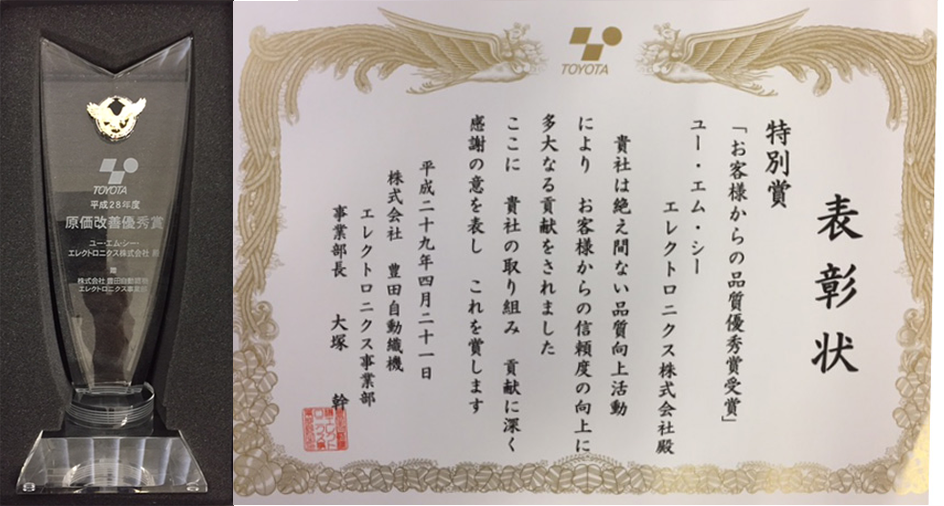 TOYOTA
平成28年度
原価改善優秀賞
ユー・エム・シー・
エレクトロニクス株式会社 殿
株式会社 豊田自動織機
エレクトロニクス事業部
TOYOTA
表彰状
特別賞
「お客様からの品質優秀賞受賞」
ユー・エム・シー
エレクトロニクス株式会社殿
貴社は絶え間ない品質向上活動
により お客様からの信頼度の向上に
多大なる貢献をされました
ここに 貴社の取り組み 貢献に深く
感謝の意を表し これを賞します
平成二十九年四月二十一日
株式会社 豊田自動織機
エレクトロニクス事業部
事業部長 大塚 幹